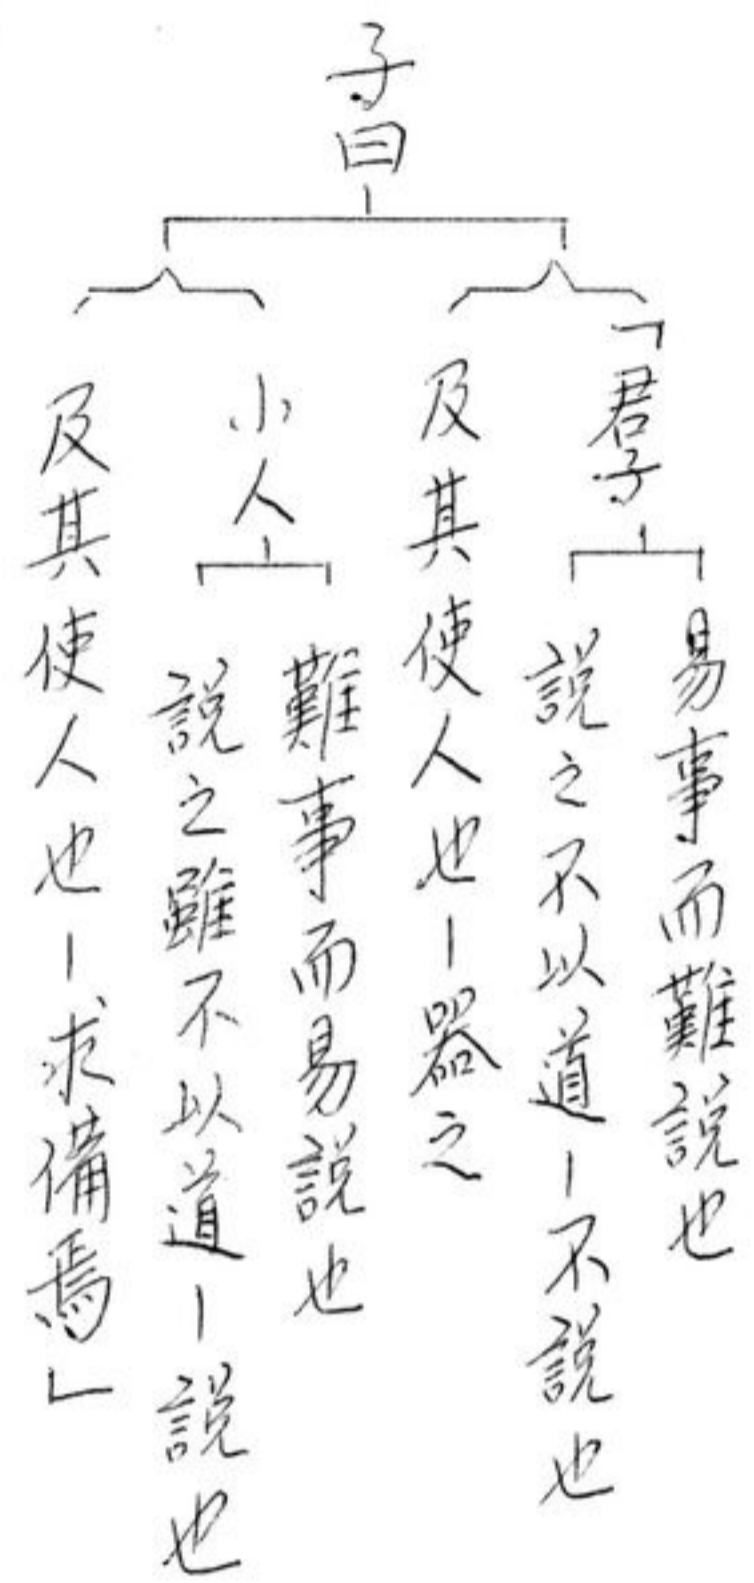 子曰
「君子
易事而難說也
說之不以道－不說也
及其使人也－器之
小人
難事而易說也
說之雖不以道－說也
及其使人也－求備焉」